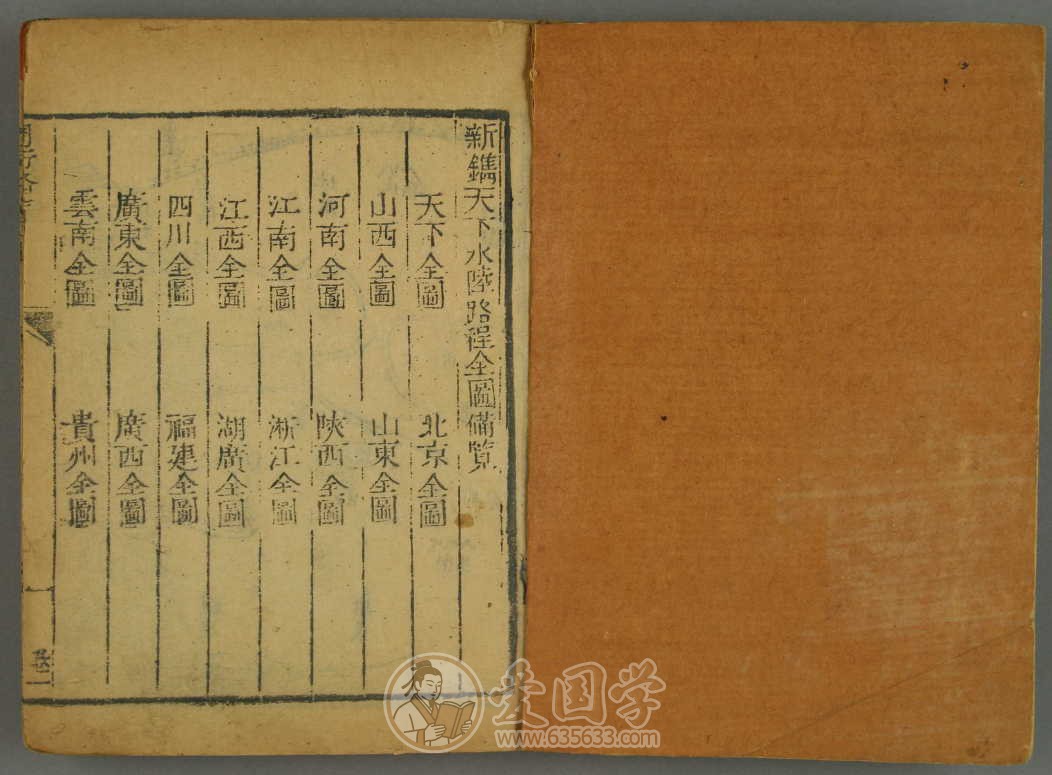 新鐫天下水陸路程全圖備覽
天下全圖 北京全圖
山西全圖 山東全圖
河南全圖 陝西全圖
江南全圖 淅江全圖
江西全圖 湖廣全圖
四川全圖 福建全圖
廣東全圖 廣西全圖
雲南全圖 貴州全圖
爱国学
www.635633.com